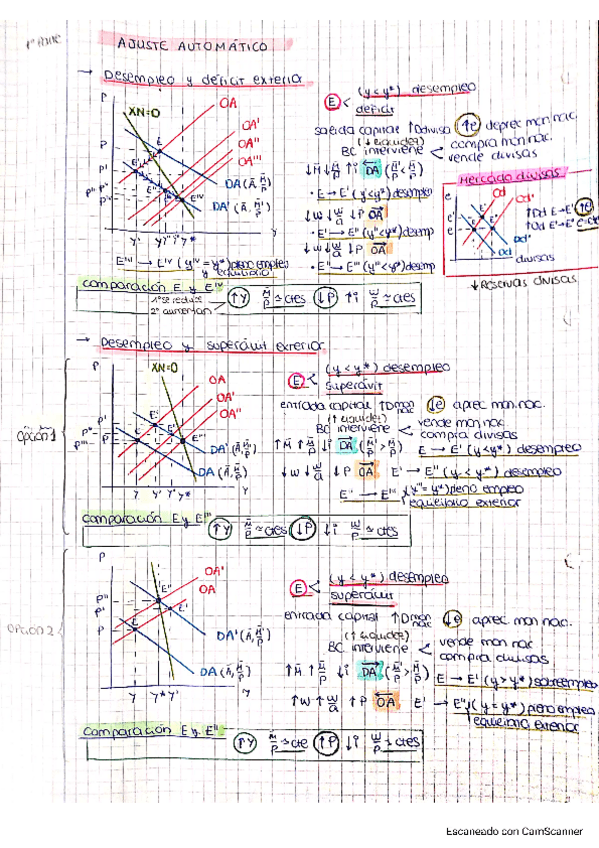 1ª PARTE
AJUSTE AUTOMÁTICO
→ Desempleo y déficit exterior
P
XN=0
OA
OA'
OA''
OA'''
DA (Ā, M̄/P)
DA' (Ā, M̄/P)
Y
E < (y<y*) desempleo
déficit
salida capital ↑Ddivisa ↑e deprec mon.nac.
(↓ liquidez)
BC interviene < compra mon nac.
vende divisas
↓M̄ ↓M̄/P ↑i DA (M̄'/P < M̄/P)
• E → E' (y<y*) desempleo
↓w ↓w/a ↓P OA
• E' → E'' (y''<y*) desemp
↓w ↓w/a ↓P OA
• E'' → E''' (y''<y*) desemp
E''' → E'^V (y^IV = y*) pleno empleo
y equilibrio
Mercado divisas
e
Od
Od'
Dd'
Dd
divisas
↑Dd E→E' ↑e
↓ Reservas divisas
Comparación E y E^IV
1º se reduce
2º aumentan
↑Y M̄/P ≃ ctes ↓P ↑i w/P ≃ ctes
→ Desempleo y superávit exterior
Opción 1
P
XN=0
OA
OA'
OA''
DA' (Ā, M̄/P)
DA (Ā, M̄/P)
Y Y' Y'' Y*
Y
E < (y<y*) desempleo
superávit
entrada capital ↑Dmon nac ↓e aprec mon.nac.
(↑ liquidez)
BC interviene < vende mon nac.
compra divisas
↑M̄ ↑M̄/P ↓i DA (M̄'/P > M̄/P) E → E' (y<y*) desempleo
↓w ↓w/a ↓P OA E' → E'' (y<y*) desempleo
E'' → E''' (y'''=y*) pleno empleo
equilibrio exterior
Comparación E y E'''
↑Y M̄/P ≃ ctes ↓P ↓i w/P ≃ ctes
Opción 2
P
OA'
OA
DA' (Ā, M̄/P)
DA (Ā, M̄/P)
Y Y* Y'
Y
E < (y<y*) desempleo
superávit
entrada capital ↑Dmon nac ↓e aprec mon nac.
(↑ liquidez)
BC interviene < vende mon nac
compra divisas
↑M̄ ↑M̄/P ↓i DA (M̄'/P > M̄/P) E → E' (y>y*) sobreempleo
↑w ↑w/a ↑P OA E' → E'' (y=y*) pleno empleo
equilibrio exterior
Comparación E y E''
↑Y M̄/P ≃ cte ↑P ↓i w/P ≃ ctes
Escaneado con CamScanner